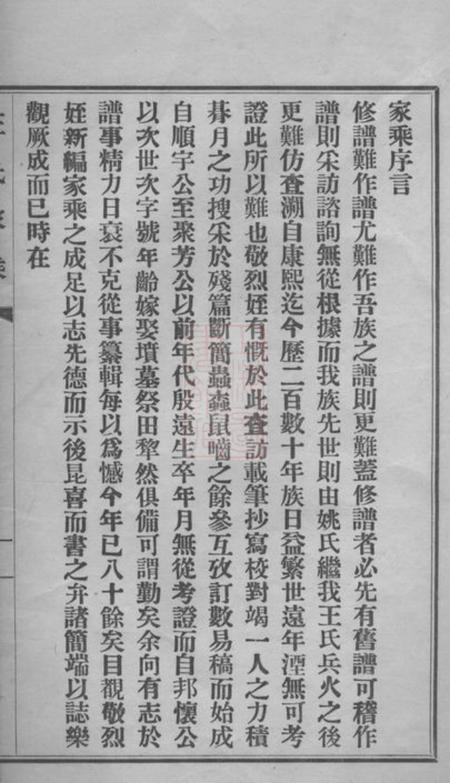 家乘序言
修譜難作譜尤難作吾族之譜則更難蓋修譜者必先有舊譜可稽作
譜則采訪諮詢無從根據而我族先世則由姚氏繼我王氏兵火之後
更難仿查溯自康熙迄今歷二百數十年族日益繁世遠年湮無可考
證此所以難也敬烈姪有慨於此查訪載筆抄寫校對竭一人之力積
朞月之功搜采於殘篇斷簡蟲蝕鼠嚙之餘參互攷訂數易稿而始成
自順宇公至聚芳公以前年代殷遠生卒年月無從考證而自邦懷公
以次世次字號年齡嫁娶墳墓祭田犂然俱備可謂勤矣余向有志於
譜事精力日衰不克從事纂輯每以爲憾今年已八十餘矣目觀敬烈
姪新編家乘之成足以志先德而示後昆喜而書之弁諸簡端以誌樂
觀厥成而已時在